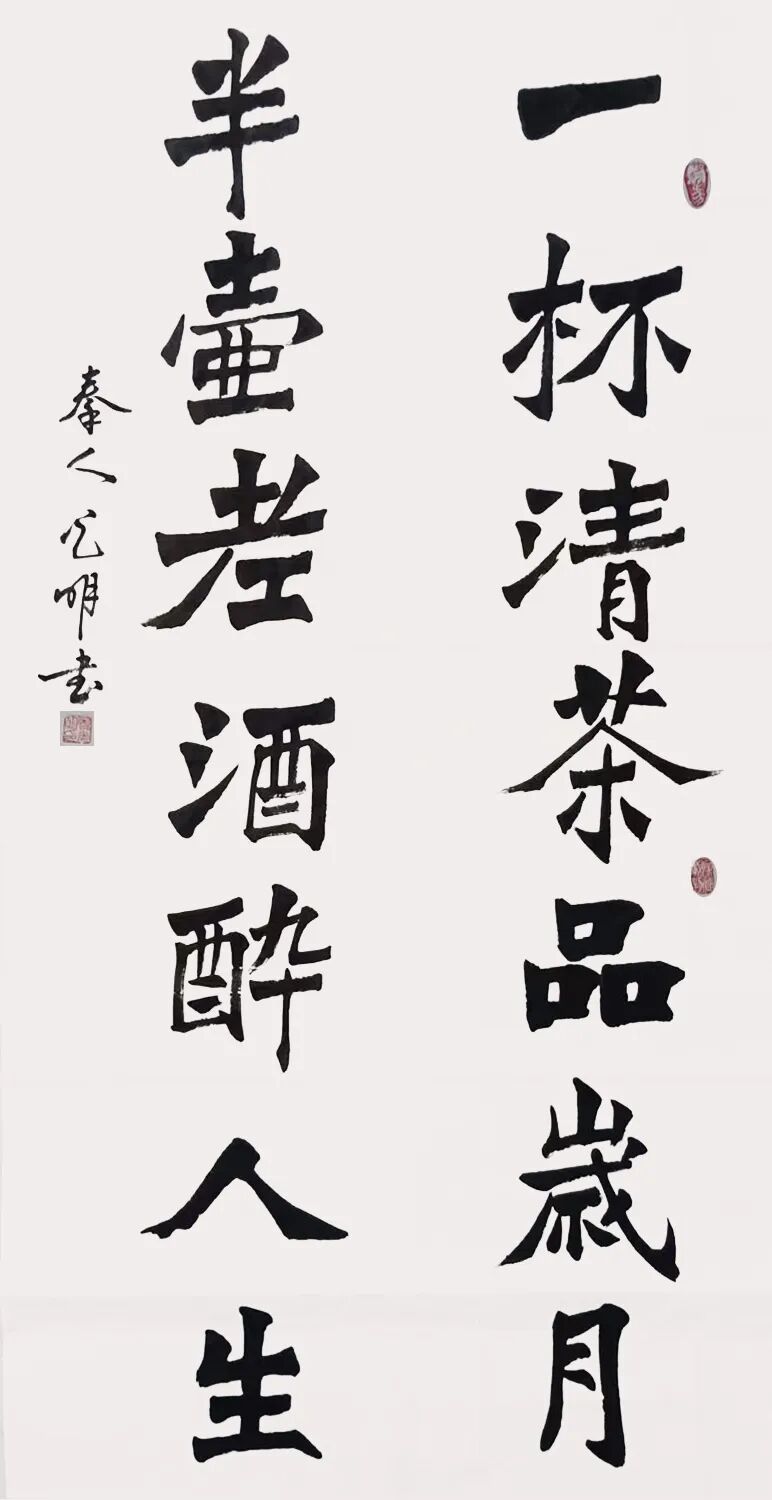 一杯清茶品歲月
半壺老酒酔人生
秦人光明書